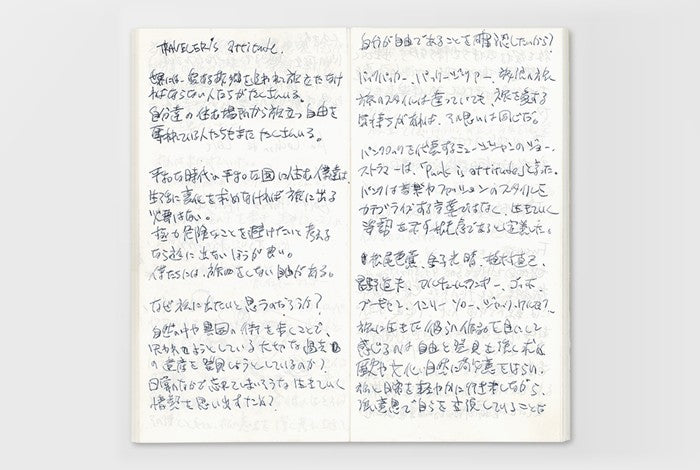 TRAVELER'S attitude.
世界には、愛する故郷を追われ旅立たなけ
ればならない人たちがたくさんいる。
自分達の住む場所から旅立つ自由を
奪われている人たちもまたたくさんいる。
平和な時代の平和な国に住む僕達は
生活に変化を求めなければ旅に出る
必要はない。
極力危険なことを避けたいと考える
なら旅に出ないほうが良い。
僕たちには、旅をしない自由がある。
なぜ旅に出たいと思うのだろうか?
自然の中や異国の街を歩くことで、
失われようとしている大切な過去
の遺産を発見しようとしているのか?
日常のなかで忘れてしまいそうな生きていく
情熱を思い出すため?
自分が自由であることを確認したいから?
バックパッカー、バッパー、旅
旅のスタイルは違っていても、旅を愛する
気持ちがあれば、その思いは同じだ。
パンクロックを代表するミュージシャンのジョー・
ストラマーは、「Punk is attitude」と言った。
パンクは音楽やファッションのスタイルを
カテゴライズする言葉ではなく、生きていく
姿勢を示す
松尾芭蕉、金子光晴、植村直己、
星野道夫、ゴッホ、
ゴーギャン、ヘンリー・ソロー、ジャック・ケルアック
旅に生きた彼らの作品を目にして
感じるのは自由と発見を強く求め
歴史や文化、自然に敬意をはらい、
旅と日常を軽やかに行き来しながら、
で自らを変
していることだ